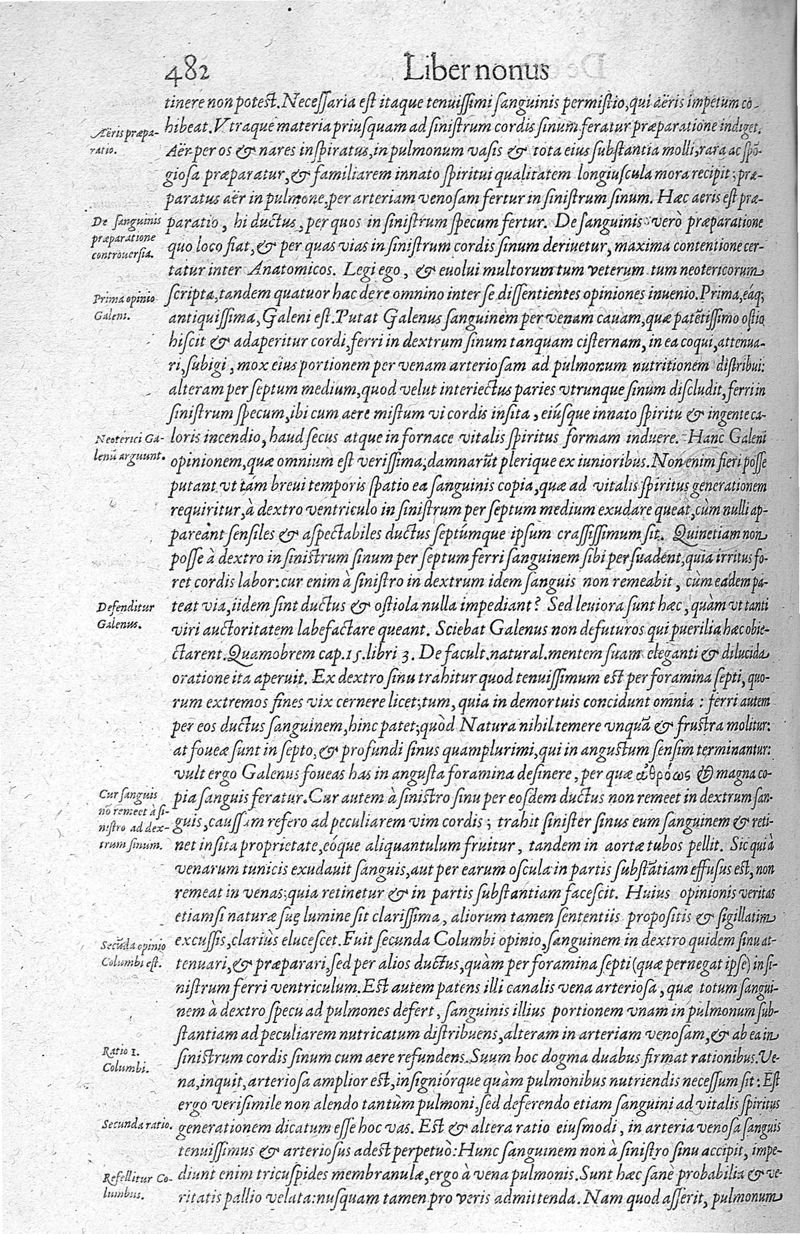 482
Liber nonus
tinere non potest. Necessaria est itaque tenuissimi sanguinis permistio, qui aëris impetum co-
Aëris præpa-
ratio.
hibeat. Vtraque materia priusquam ad sinistrum cordis sinum feratur præparatione indiget.
Aër per os & nares inspiratus, in pulmonum vasis & tota eius substantia molli, rara ac spō-
giosa præparatur, & familiarem innato spiritui qualitatem longiuscula mora recipit; præ-
paratus aër in pulmone, per arteriam venosam fertur in sinistrum sinum. Hæc aeris est præ-
De sanguinis
præparatione
controuersia.
paratio, hi ductus, per quos in sinistrum specum fertur. De sanguinis verò præparatione
quo loco fiat, & per quas vias in sinistrum cordis sinum deriuetur, maxima contentione cer-
tatur inter Anatomicos. Legi ego, & euolui multorum tum veterum tum neotericorum
Prima opinio
Galeni.
scripta, tandem quatuor hac de re omnino inter se dissentientes opiniones inuenio. Prima, eáq;
antiquissima, Galeni est. Putat Galenus sanguinem per venam cauam, quæ patētissimo ostio
hiscit & adaperitur cordi, ferri in dextrum sinum tanquam cisternam, in ea coqui, attenua-
ri, subigi, mox eius portionem per venam arteriosam ad pulmonum nutritionem distribui:
alteram per septum medium, quod velut interiectus paries vtrunque sinum discludit, ferri in
sinistrum specum, ibi cum aere mistum vi cordis insita, eiúsque innato spiritu & ingente ca-
Neoterici Ga-
lenū arguunt.
loris incendio, haud secus atque in fornace vitalis spiritus formam induere. Hanc Galeni
opinionem, quæ omnium est verissima, damnarūt plerique ex iunioribus. Non enim fieri posse
putant vt tam breui temporis spatio ea sanguinis copia, quæ ad vitalis spiritus generationem
requiritur, à dextro ventriculo in sinistrum per septum medium exudare queat, cùm nulli ap-
pareant sensiles & aspectabiles ductus septúmque ipsum crassissimum sit. Quinetiam non
posse à dextro in sinistrum sinum per septum ferri sanguinem sibi persuadent, quia irritus fo-
ret cordis labor: cur enim à sinistro in dextrum idem sanguis non remeabit, cùm eadem pa-
Defenditur
Galenus.
teat via, iidem sint ductus & ostiola nulla impediant? Sed leuiora sunt hæc, quàm vt tanti
viri auctoritatem labefactare queant. Sciebat Galenus non defuturos qui puerilia hæc obie-
ctarent. Quamobrem cap. 15. libri 3. De facult. natural. mentem suam eleganti & dilucida
oratione ita aperuit. Ex dextro sinu trahitur quod tenuissimum est per foramina septi, quo-
rum extremos fines vix cernere licet; tum, quia in demortuis concidunt omnia: ferri autem
per eos ductus sanguinem, hinc patet; quòd Natura nihil temere vnquā & frustra molitur:
at foueæ sunt in septo, & profundi sinus quamplurimi, qui in angustum sensim terminantur:
vult ergo Galenus foueas has in angusta foramina desinere, per quæ ἀθρόως & magna co-
Cur sanguis
nō remeet à si-
nistro ad dex-
trum sinum.
pia sanguis feratur. Cur autem à sinistro sinu per eosdem ductus non remeet in dextrum san-
guis, caussam refero ad peculiarem vim cordis; trahit sinister sinus eum sanguinem & reti-
net insita proprietate, eóque aliquantulum fruitur, tandem in aortæ tubos pellit. Sic quia
venarum tunicis exudauit sanguis, aut per earum oscula in partis substātiam effusus est, non
remeat in venas; quia retinetur & in partis substantiam facescit. Huius opinionis veritas
etiamsi naturæ suę lumine sit clarissima, aliorum tamen sententiis propositis & sigillatim
Secūda opinio
Columbi est.
excussis, clariùs elucescet. Fuit secunda Columbi opinio, sanguinem in dextro quidem sinu at-
tenuari, & præparari, sed per alios ductus, quàm per foramina septi (quæ pernegat ipse) in si-
nistrum ferri ventriculum. Est autem patens illi canalis vena arteriosa, quæ totum sangui-
nem à dextro specu ad pulmones defert, sanguinis illius portionem vnam in pulmonum sub-
stantiam ad peculiarem nutricatum distribuens, alteram in arteriam venosam, & ab ea in
Ratio 1.
Columbi.
sinistrum cordis sinum cum aere refundens. Suum hoc dogma duabus firmat rationibus. Ve-
na, inquit, arteriosa amplior est, insigniórque quàm pulmonibus nutriendis necessum sit: Est
ergo verisimile non alendo tantùm pulmoni, sed deferendo etiam sanguini ad vitalis spiritus
Secunda ratio.
generationem dicatum esse hoc vas. Est & altera ratio eiusmodi, in arteria venosa sanguis
tenuissimus & arteriosus adest perpetuò: Hunc sanguinem non à sinistro sinu accipit, impe-
Refellitur Co-
lumbus.
diunt enim tricuspides membranulæ, ergo à vena pulmonis. Sunt hæc sanè probabilia & ve-
ritatis pallio velata: nusquam tamen pro veris admittenda. Nam quod asserit, pulmonum